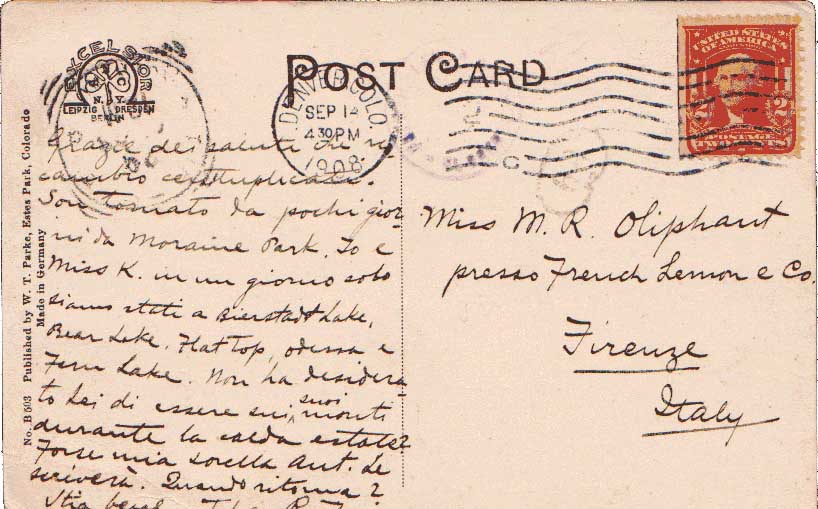 EXCELSIOR
N.Y.
LEIPZIG DRESDEN
BERLIN
POST CARD
DENVER COLO.
SEP 14
430 PM
1908
UNITED STATES
OF AMERICA
2 2
TWO CENTS
No. B 503 Published by W. T. Parke, Estes Park, Colorado
Made in Germany
Grazie dei saluti che ri
cambio centuplicati.
Son tornato da pochi gior
ni da Moraine Park. Io e
Miss K. in un giorno solo
siamo stati a Bierstadt Lake,
Bear Lake. Flat Top, Odessa e
Fern Lake. Non ha desidera
to Lei di essere sui suoi monti
durante la calda estate?
Forse mia sorella Ant. Le
scriverà. Quando ritorna?
Stia bene.
Miss M. R. Oliphant
presso French Lemon e Co.
Firenze
Italy